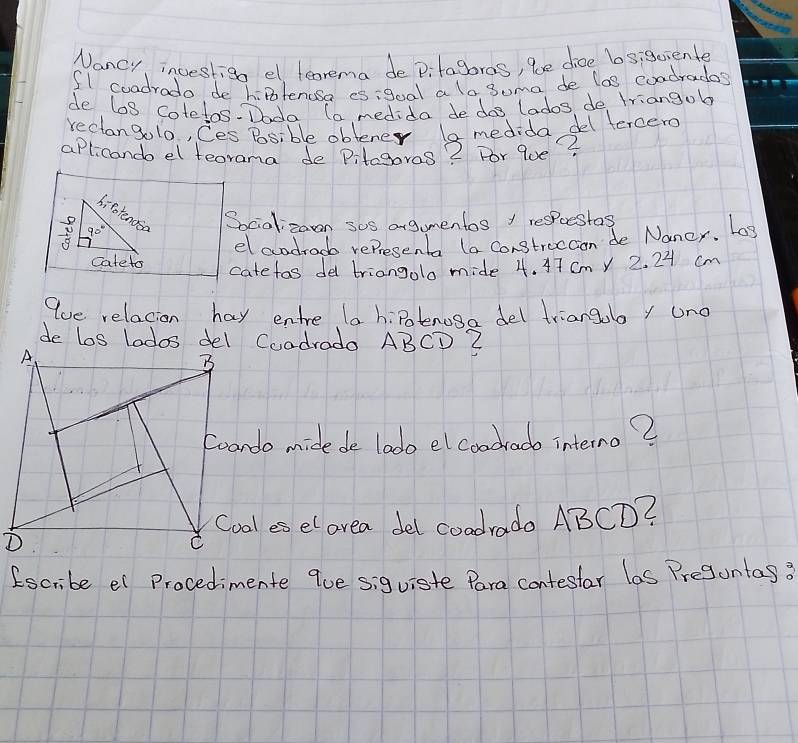 Nancy investiga el teorema de Pitagoras, que dice lo siguiente
El cuadrado de hipotenosa es igual a la suma de los cuadrados
de los catetos. Dada la medida de dos lados de triangulo
rectangulo, Ces Posible obtener la medida del tercero
aplicando el teorama de Pitagoras? Por que?
hipotenosa
cateto
90°
Cateto
Socializaron sus argumentos y respuestas
el cuadrado representa la construccion de Nancy. Los
catetos del triangulo mide 4.47 cm y 2.24 cm
Que relacion hay entre la hipotenusa del triangulo y uno
de los lados del Cuadrado ABCD?
A
B
Cuando mide de lado el cuadrado interno?
Cual es el area del cuadrado ABCD?
D
C
Escribe el Procedimente que siguiste Para contestar las Preguntas: